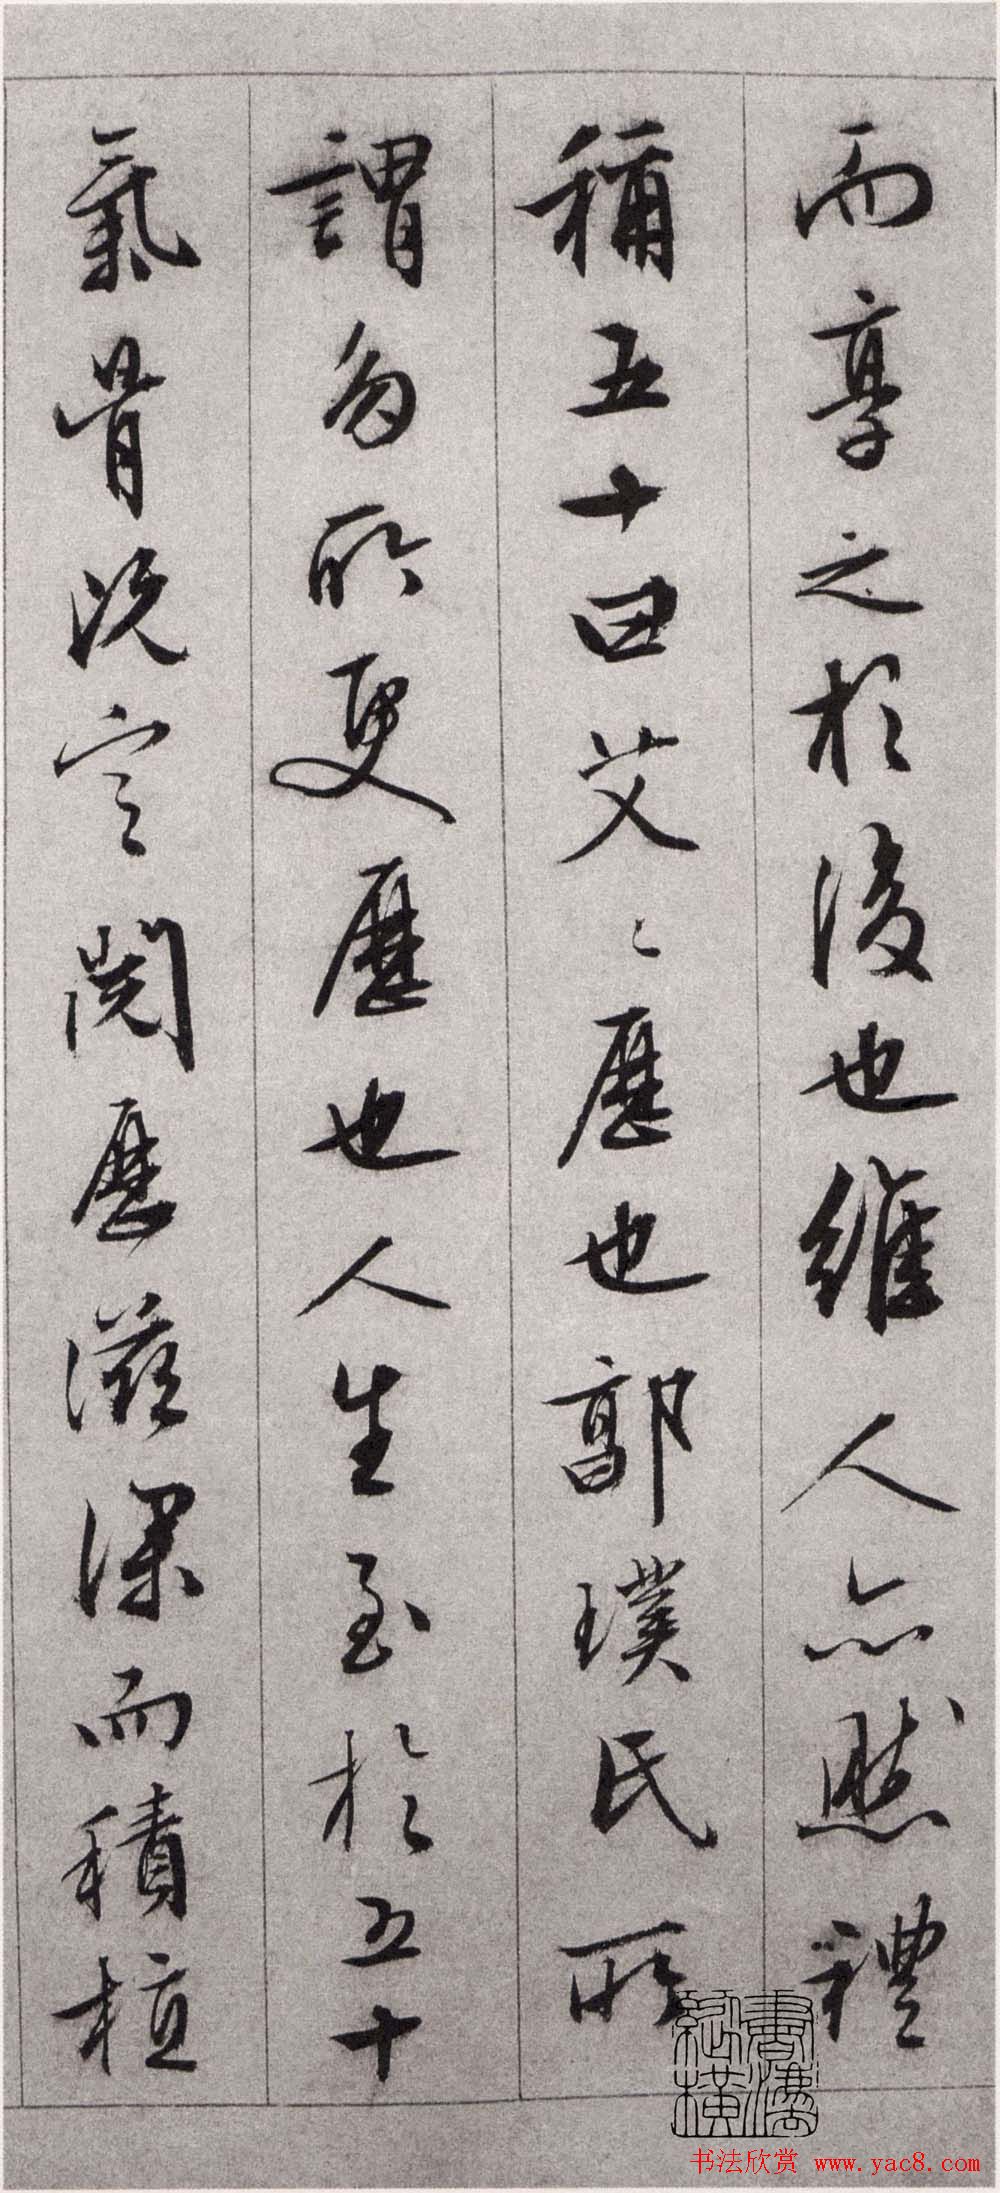 而享之於後也維人亦然禮
稱五十曰艾艾歷也郭璞氏所
謂多所更歷也人生至於五十
氣骨既定閱歷滋深而積植
書法縱橫
书法欣赏 www.yac8.com